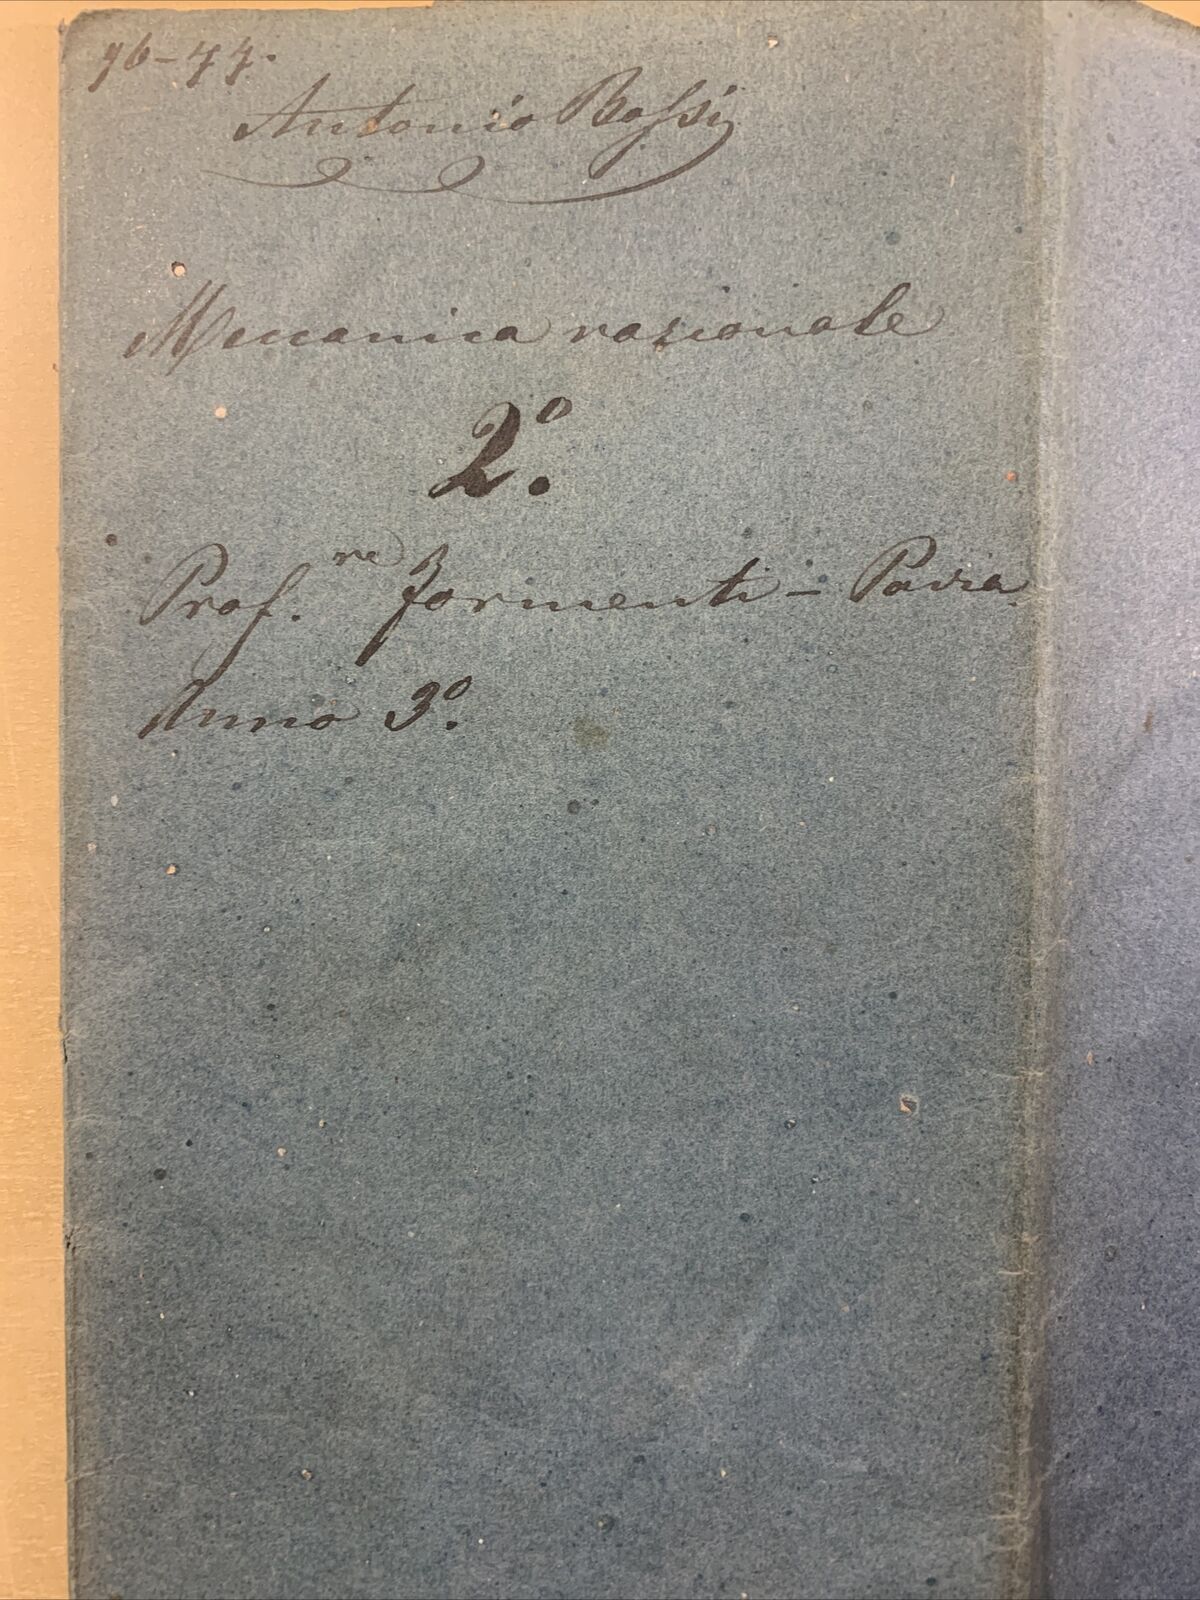 76-77.
Antonio Bossi
Meccanica razionale
2º.
Prof.re Formenti - Pavia.
Anno 3º.